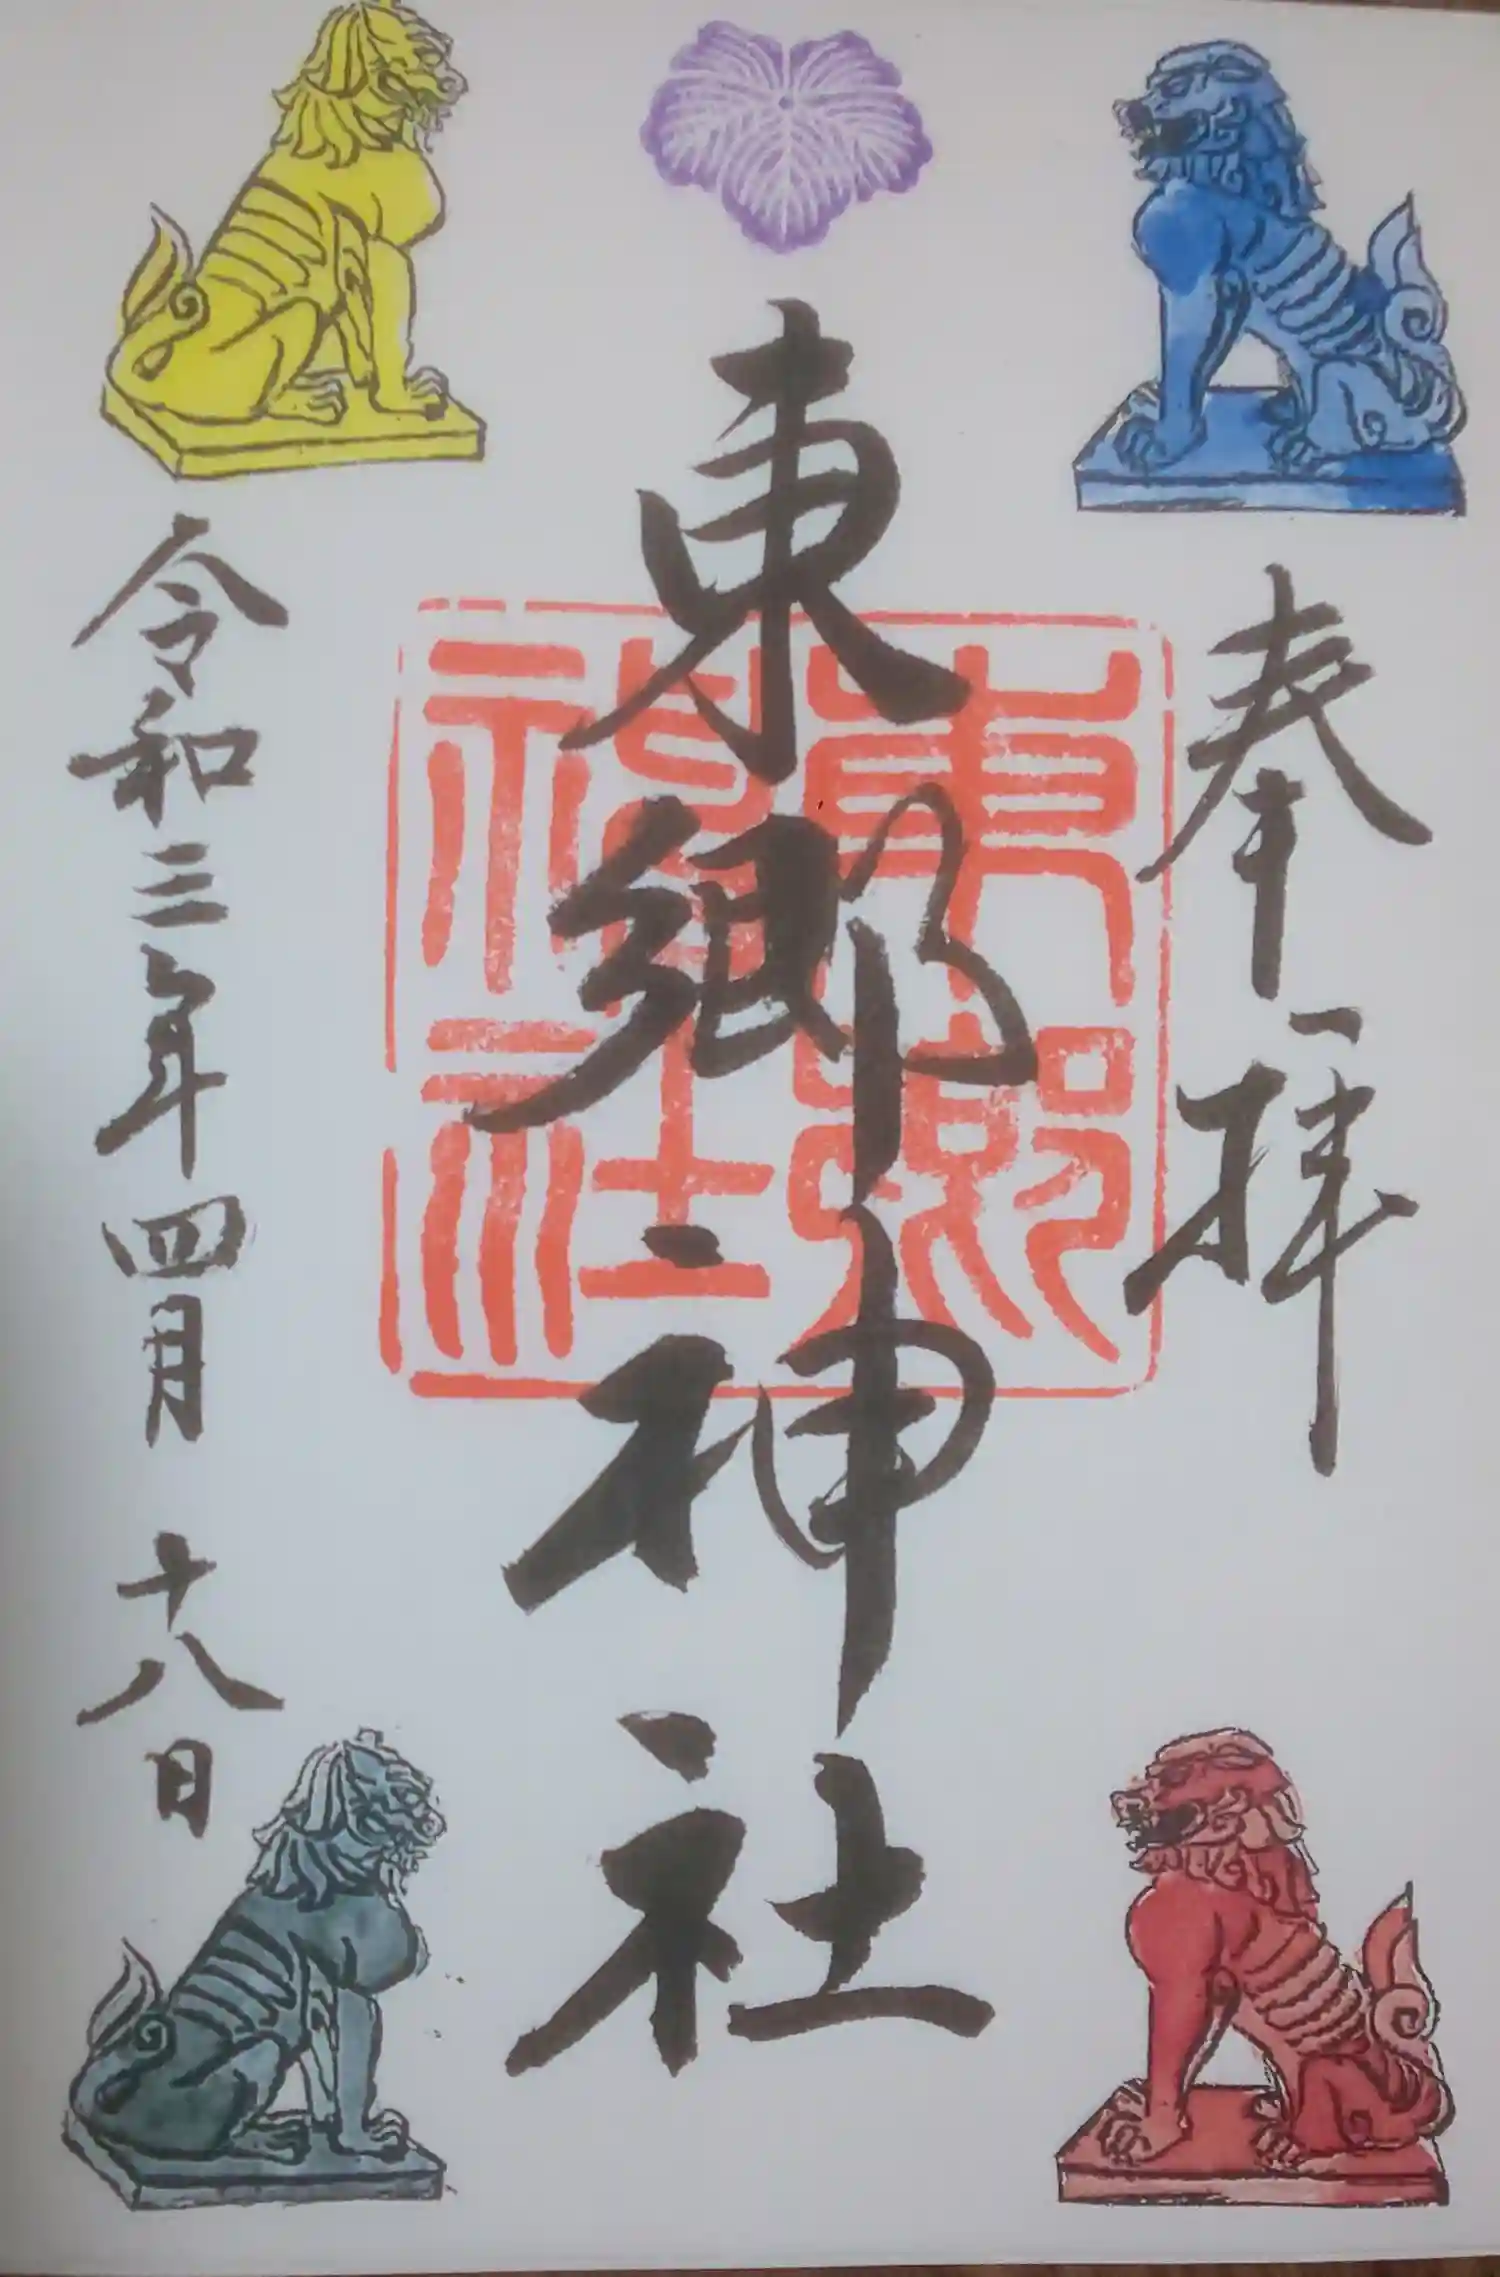 奉拝
東郷神社
東郷神社
令和三年四月十八日